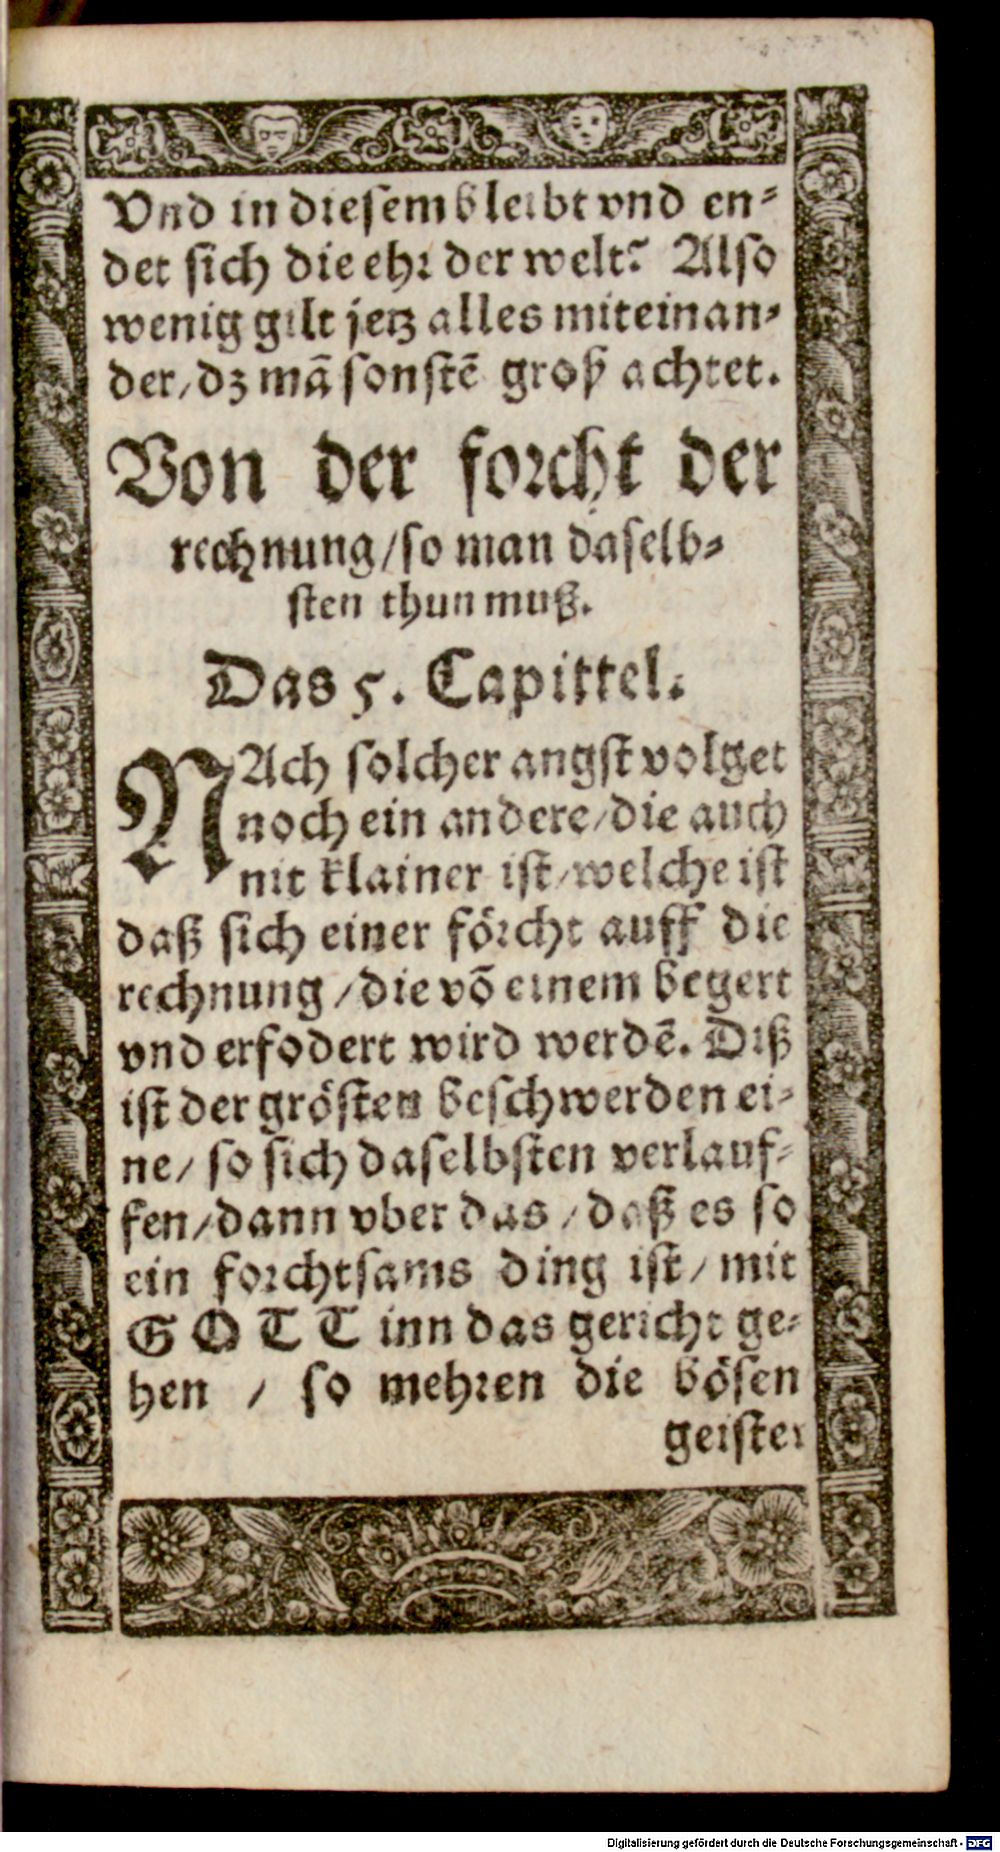 Vnd in diesem bleibt vnd en⸗
det sich die ehr der welt? Also
wenig gilt jetz alles miteinan⸗
der/dz mā sonstē groß achtet.
Von der forcht der
rechnung/so man daselb⸗
sten thun muß.
Das 5. Capittel.
NAch solcher angst volget
noch ein andere/die auch
nit klainer ist/welche ist
daß sich einer förcht auff die
rechnung/die vō einem begert
vnd erfodert wird werdē. Diß
ist der grösten beschwerden ei⸗
ne/ so sich daselbsten verlauf⸗
fen/dann vber das/daß es so
ein forchtsams ding ist/mit
GOTT inn das gericht ge⸗
hen / so mehren die bösen
geister
Digitalisierung gefördert durch die Deutsche Forschungsgemeinschaft - DFG